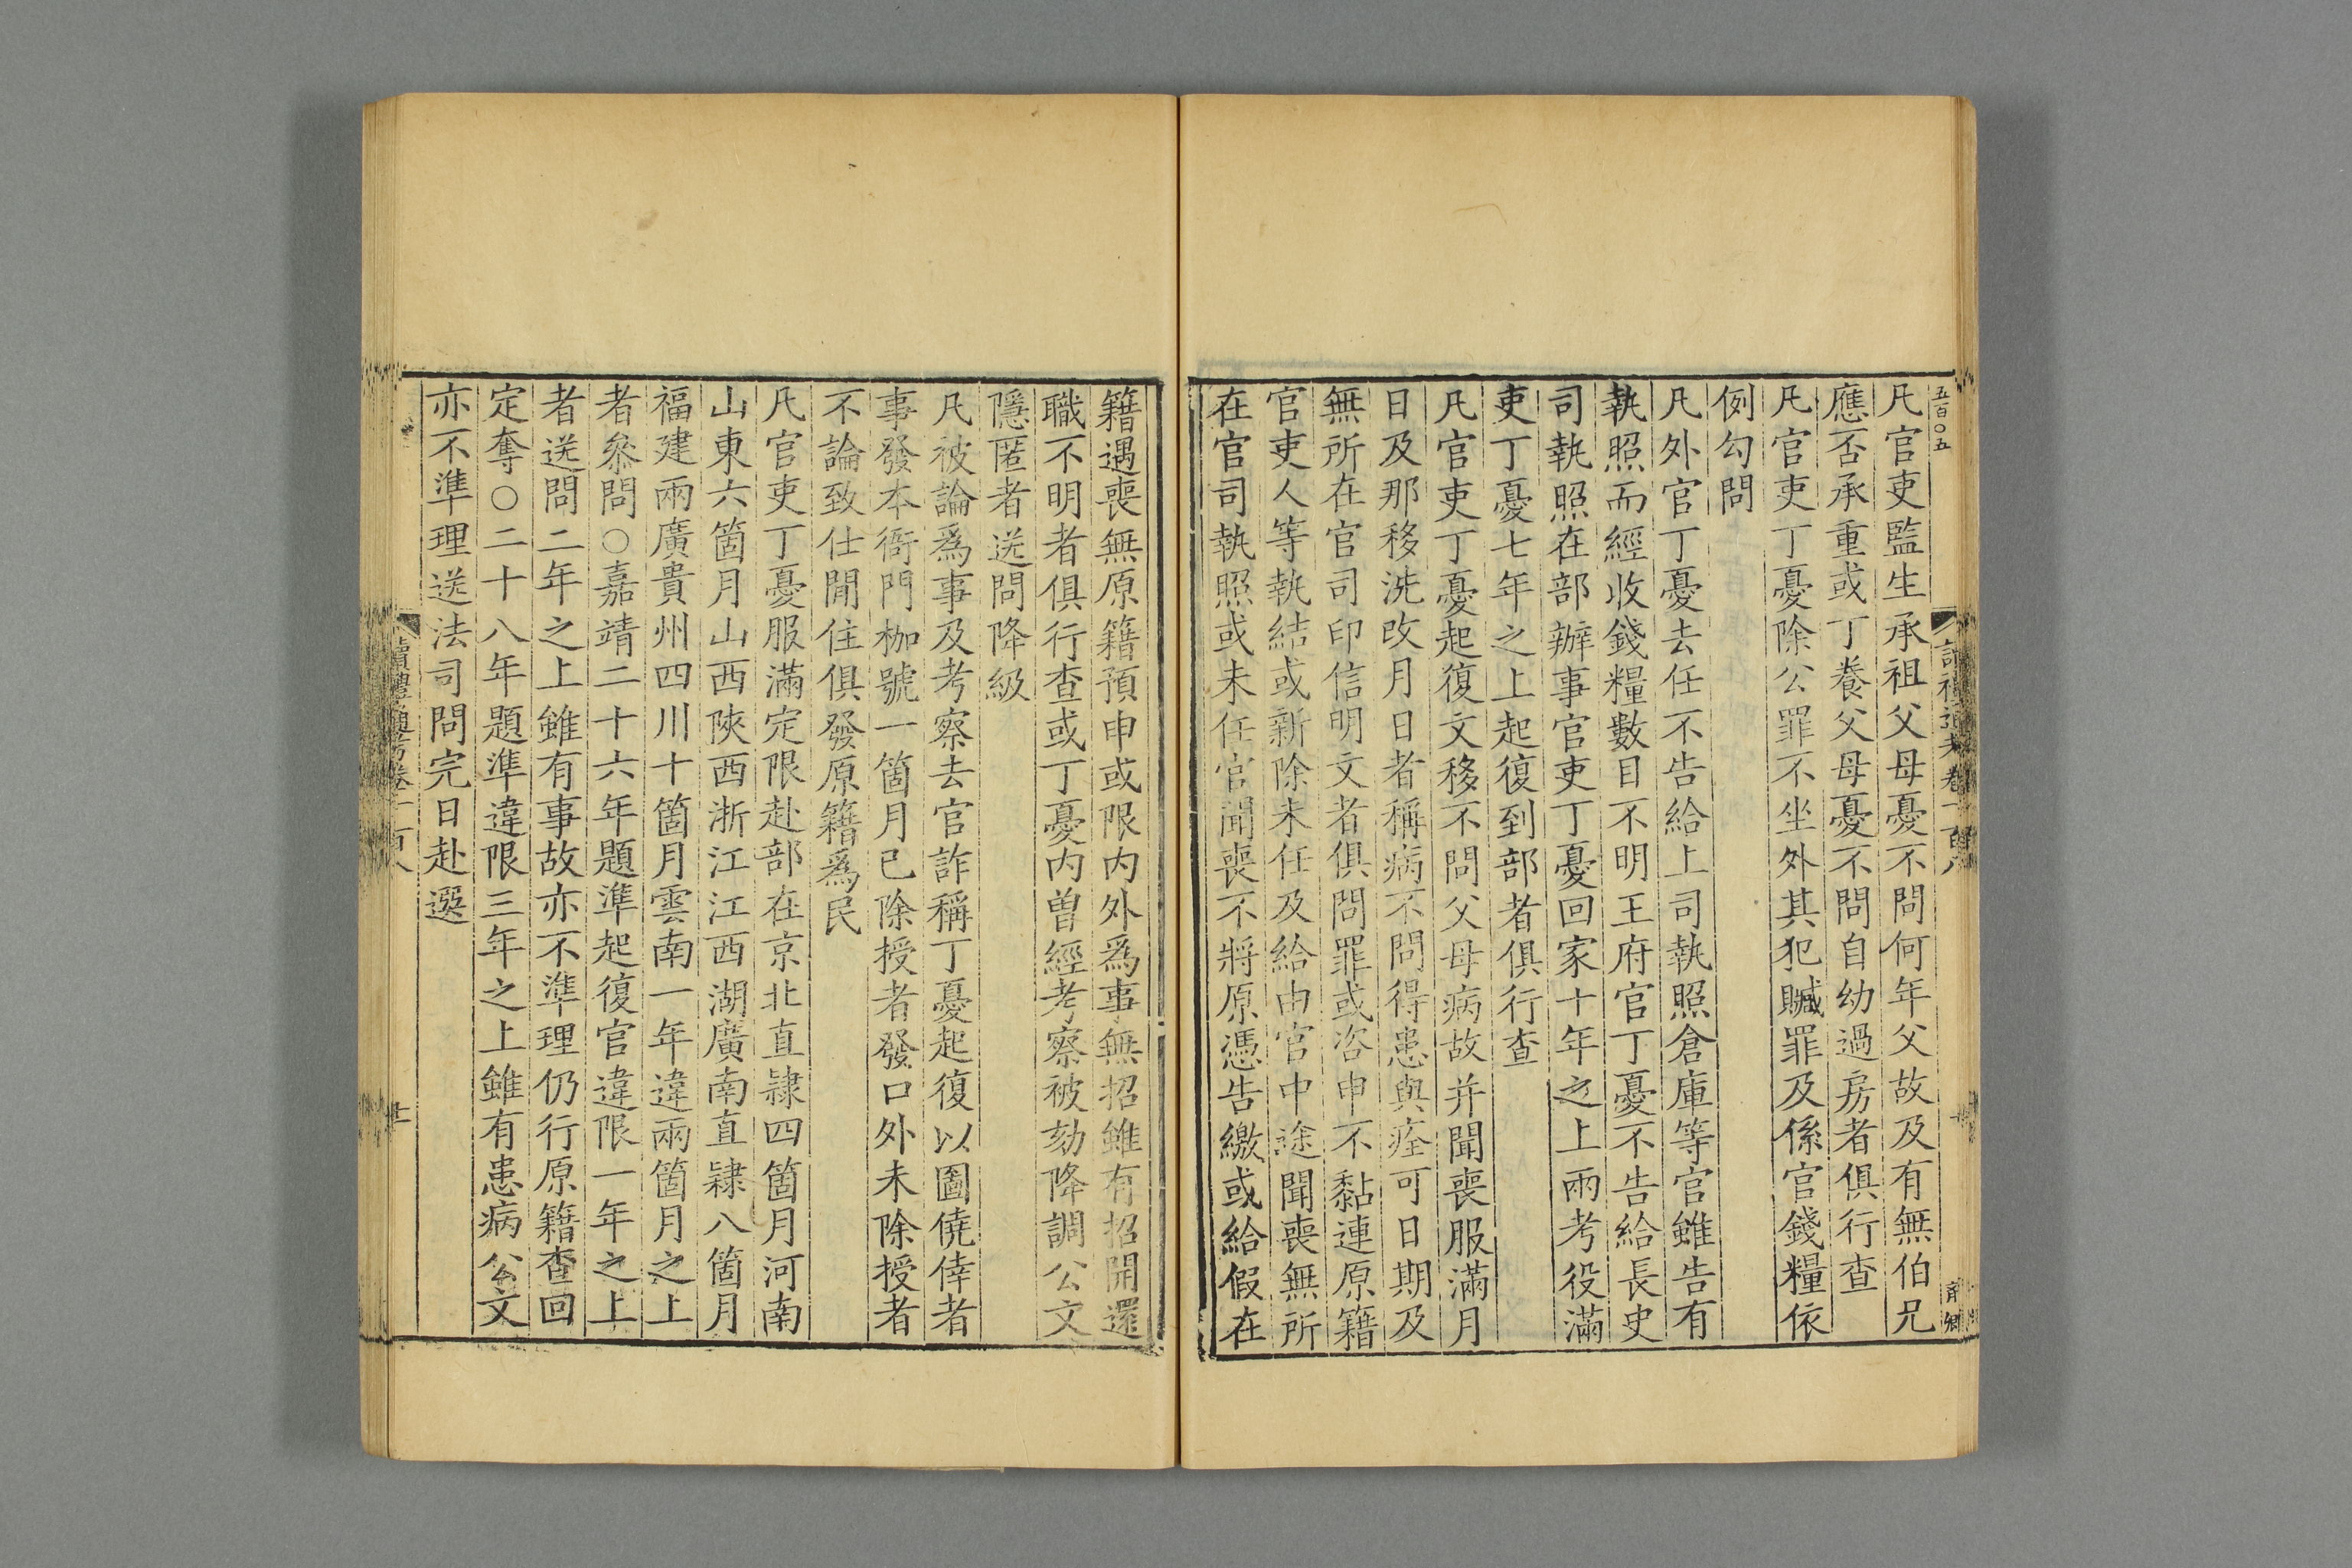 五百〇五
凡官吏監生承祖父母憂不問何年父故及有無伯兄
應否承重或丁養父母憂不問自幼過房者俱行查
凡官吏丁憂除公罪不坐外其犯贓罪及係官錢糧依
例勾問
凡外官丁憂去任不告給上司執照倉庫等官雖告有
執照而經收錢糧數目不明王府官丁憂不告給長史
司執照在部辦事官吏丁憂回家十年之上兩考役滿
吏丁憂七年之上起復到部者俱行查
凡官吏丁憂起復文移不問父母病故并聞喪服滿月
日及那移洗改月日者稱病不問得患與痊可日期及
無所在官司印信明文者俱問罪或咨申不黏連原籍
官吏人等執結或新除未任及給由官中途聞喪無所
在官司執照或未任官聞喪不將原憑告繳或給假在
籍遇喪無原籍預申或限内外爲事無招雖有招開還
職不明者俱行查或丁憂内曾經考察被劾降調公文
隱匿者送問降級
凡被論爲事及考察去官詐稱丁憂起復以圖僥倖者
事發本衙門枷號一箇月已除授者發口外未除授者
不論致仕閒住俱發原籍爲民
凡官吏丁憂服滿定限赴部在京北直隸四箇月河南
山東六箇月山西陝西浙江江西湖廣南直隸八箇月
福建兩廣貴州四川十箇月雲南一年違兩箇月之上
者叅問〇嘉靖二十六年題準起復官違限一年之上
者送問二年之上雖有事故亦不準理仍行原籍查回
定奪〇二十八年題準違限三年之上雖有患病公文
亦不準理送法司問完日赴選
讀禮通考卷一百八